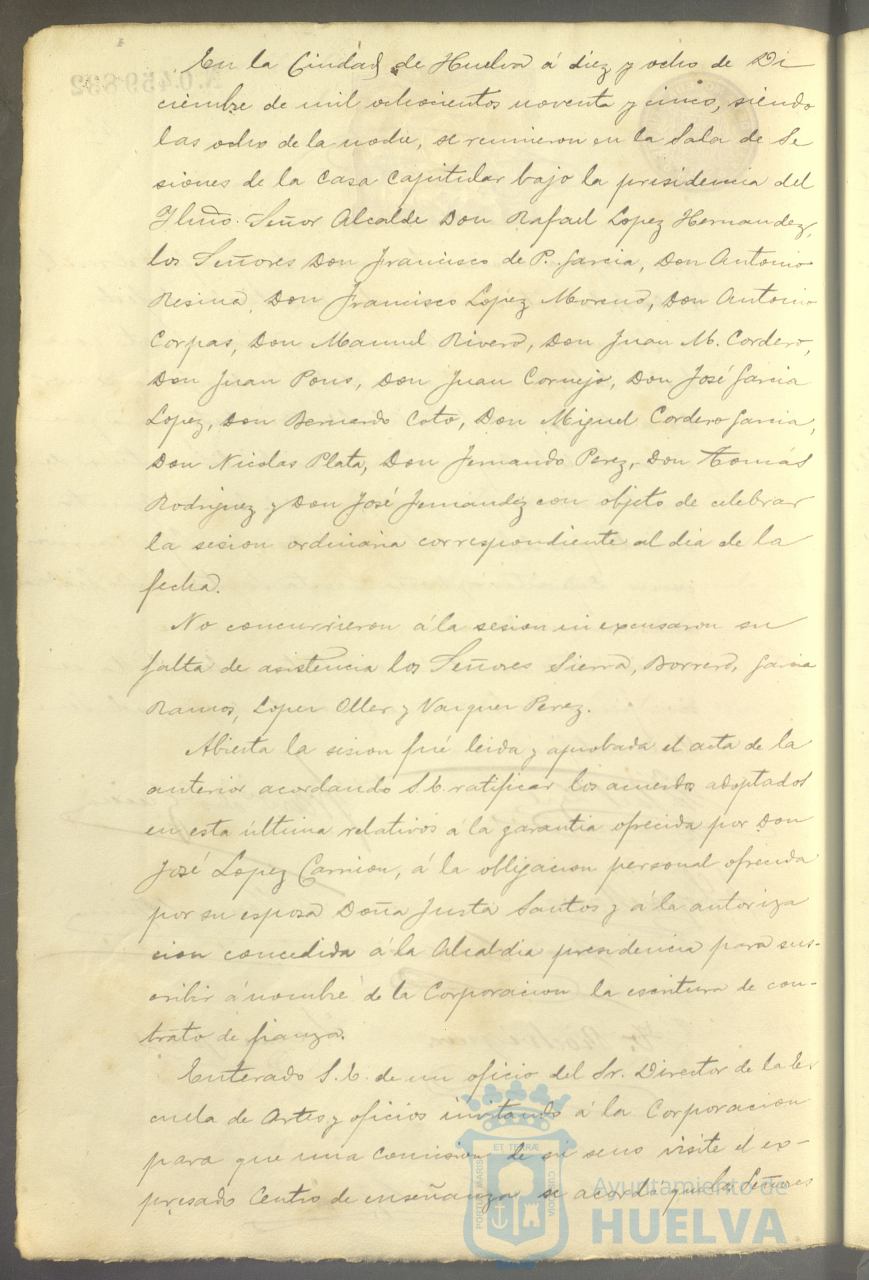 En la Ciudad de Huelva á diez y ocho de Di
ciembre de mil ochocientos noventa y cinco, siendo
las ocho de la noche, se reunieron en la Sala de Se
siones de la Casa Capitular bajo la presidencia del
Iltmo. Señor Alcalde Don Rafael Lopez Hernandez,
los Señores Don Francisco de P. Garcia, Don Antonio
Resina, Don Francisco Lopez Moreno, Don Antonio
Corpas, Don Manuel Rivero, Don Juan M. Cordero,
Don Juan Pons, Don Juan Cornejo, Don José Garcia
Lopez, Don Bernardo Coto, Don Miguel Cordero Garcia,
Don Nicolas Plata, Don Fernando Perez, Don Tomás
Rodriguez y Don José Fernandez con objeto de celebrar
la sesion ordinaria correspondiente al dia de la
fecha.
No concurrieron á la sesion ni excusaron su
falta de asistencia los Señores Sierra, Borrero, Garcia
Ramos, Lopez Oller y Vazquez Perez.
Abierta la sesion fué leida y aprobada el acta de la
anterior acordando S.E. ratificar los acuerdos adoptados
en esta última relativos á la garantia ofrecida por Don
José Lopez Carrion, á la obligacion personal ofrecida
por su esposa Doña Justa Santos y á la autoriza
cion concedida á la Alcaldia presidencia para sus-
cribir á nombre de la Corporacion la escritura de con-
trato de fianza.
Enterado S.E. de un oficio del Sr. Director de la Es
cuela de Artes y oficios invitando á la Corporacion
para que una comision de su seno visite el ex-
presado Centro de enseñanza, se acordó que los Señores
PORTUS MARIS ET TERRÆ CUSTODIA
Ayuntamiento de
HUELVA